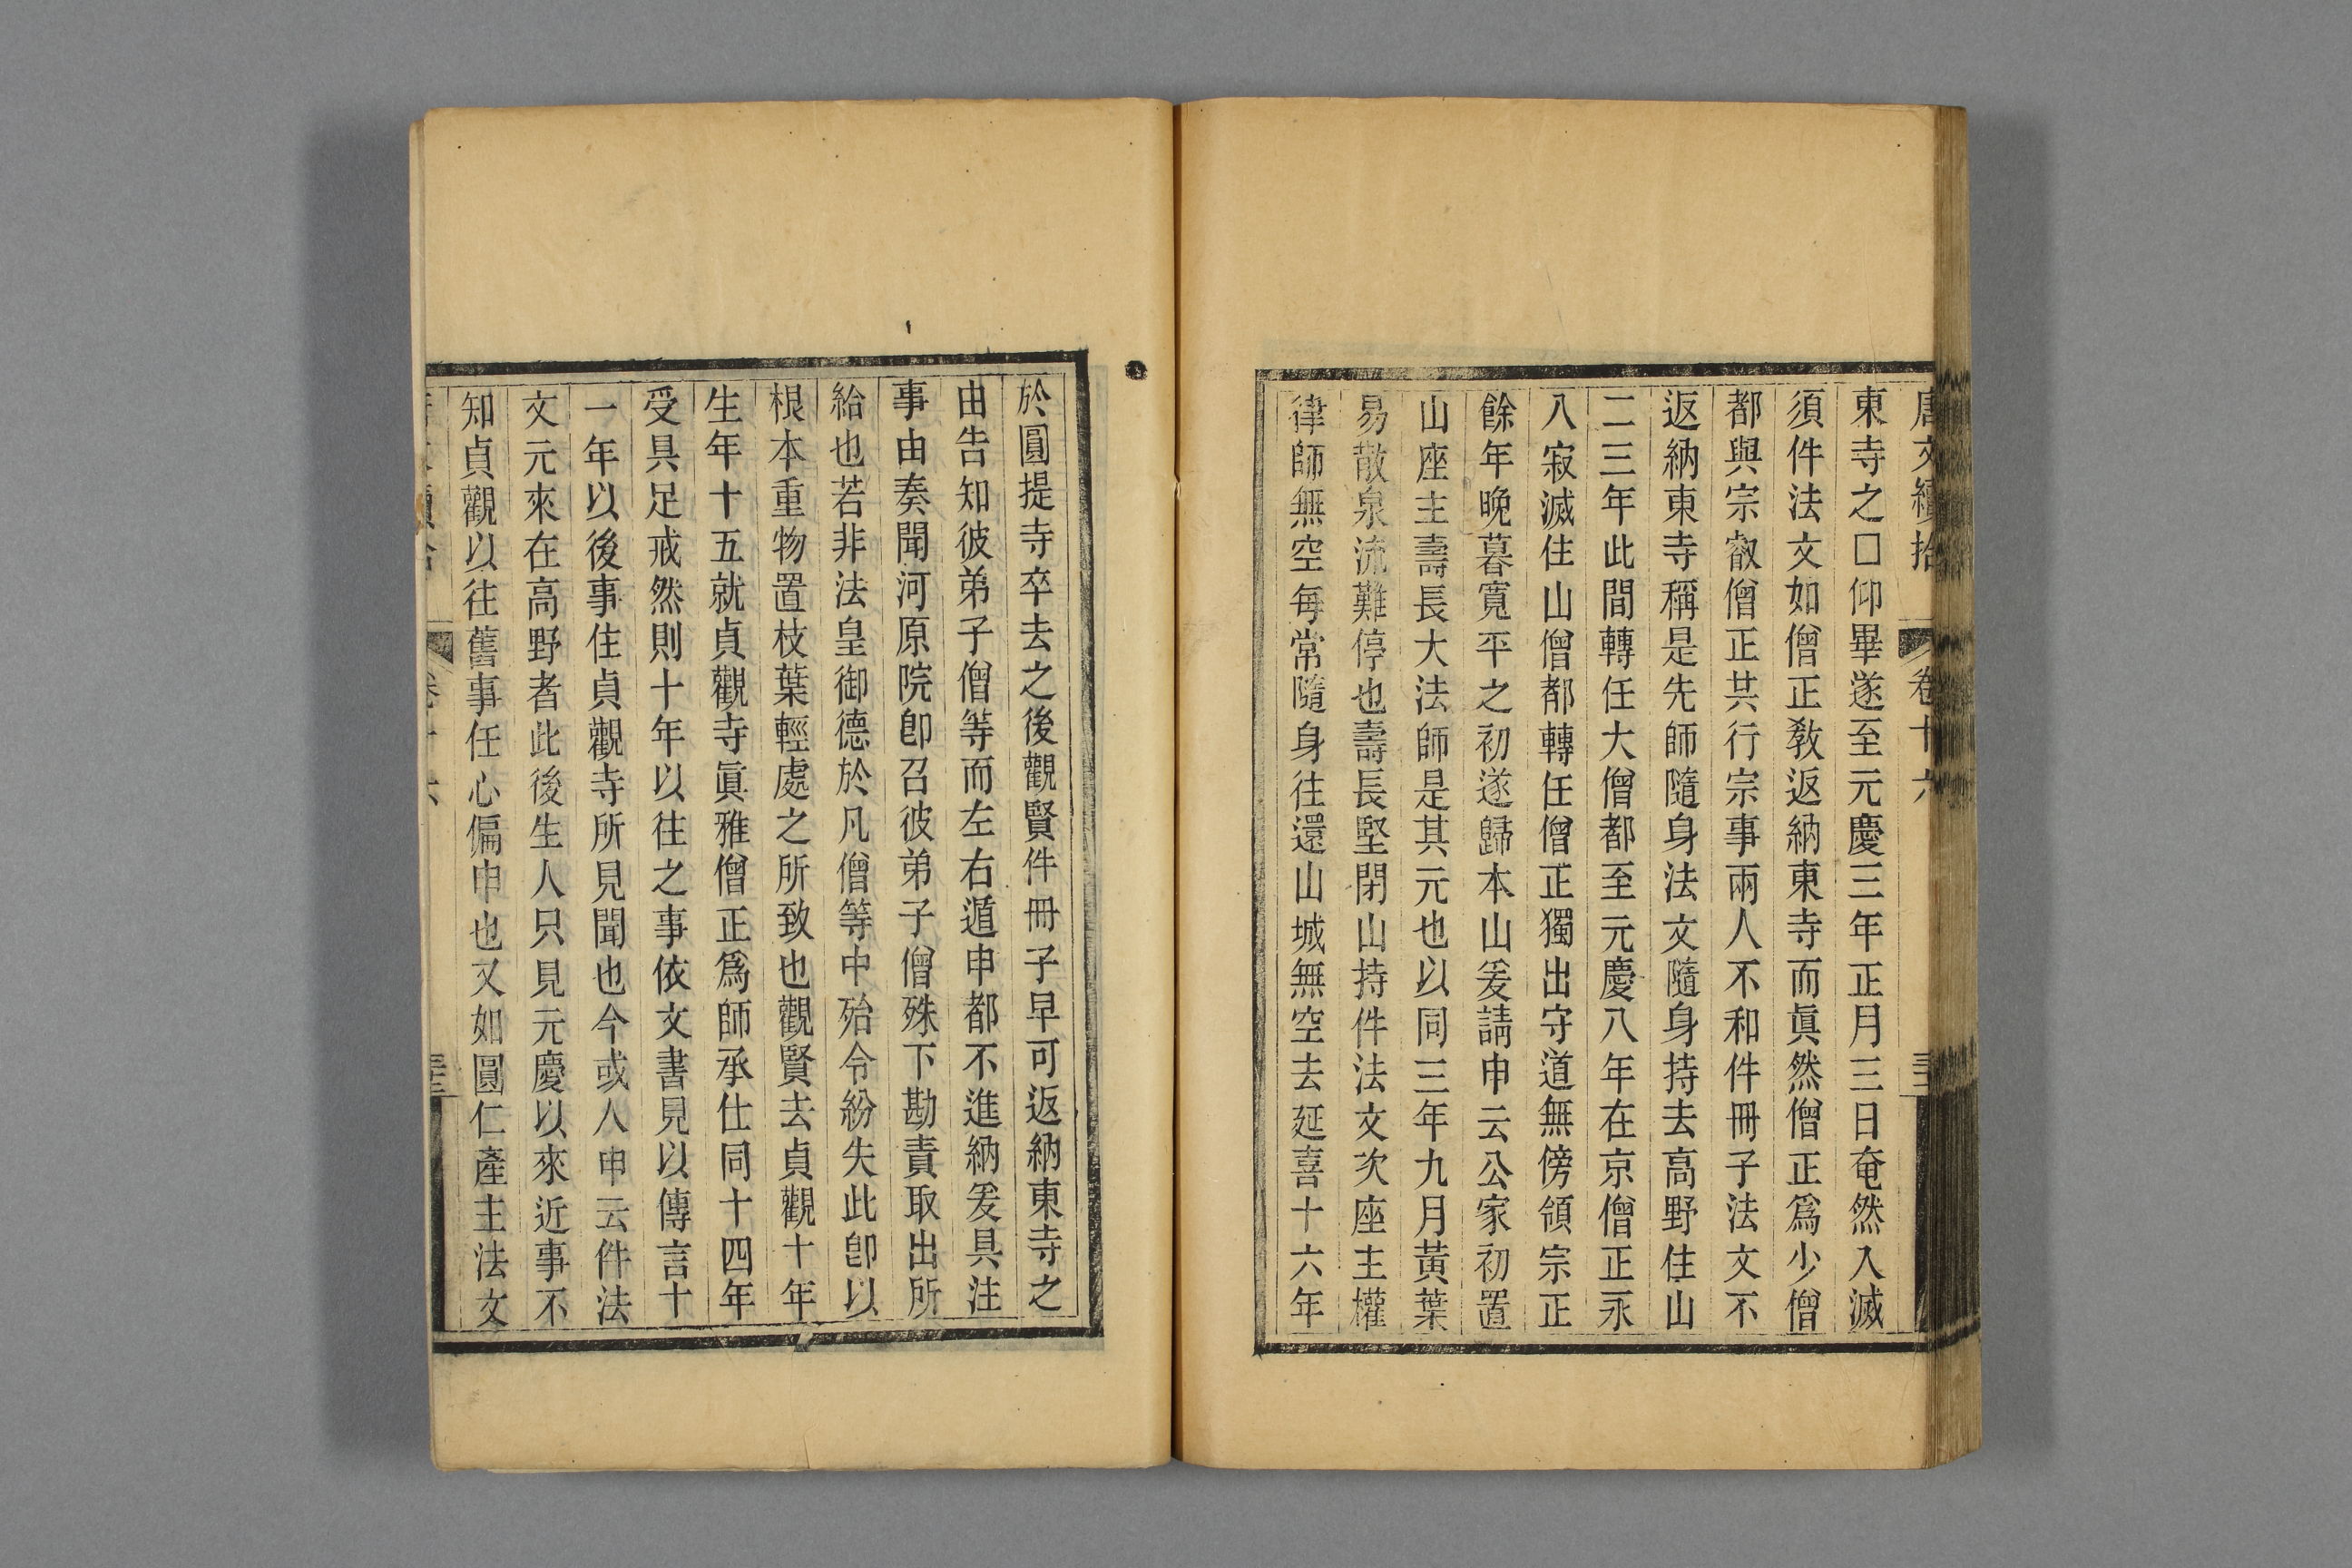 唐文續拾 卷十六
東寺之□仰畢遂至元慶三年正月三日奄然入滅
須件法文如僧正教返納東寺而眞然僧正爲少僧
都與宗叡僧正共行宗事兩人不和件冊子法文不
返納東寺稱是先師隨身法文隨身持去高野住山
二三年此間轉任大僧都至元慶八年在京僧正永
八寂滅住山僧都轉任僧正獨出守道無傍領宗正
餘年晚暮寬平之初遂歸本山爰請申云公家初置
山座主壽長大法師是其元也以同三年九月黃葉
易散泉流難停也壽長堅閉山持件法文次座主權
律師無空每常隨身往還山城無空去延喜十六年
於圓提寺卒去之後觀賢件冊子早可返納東寺之
由告知彼弟子僧等而左右遁申都不進納爰具注
事由奏聞河原院卽召彼弟子僧殊下勘責取出所
給也若非法皇御德於凡僧等中殆令紛失此卽以
根本重物置枝葉輕處之所致也觀賢去貞觀十年
生年十五就貞觀寺眞雅僧正爲師承仕同十四年
受具足戒然則十年以往之事依文書見以傳言十
一年以後事住貞觀寺所見聞也今或人申云件法
文元來在高野者此後生人只見元慶以來近事不
知貞觀以往舊事任心偏申也又如圓仁產主法文